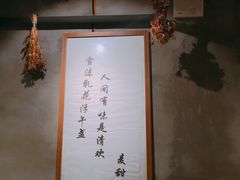 雪沫乳花浮午盏
人间有味是清欢
麦甜